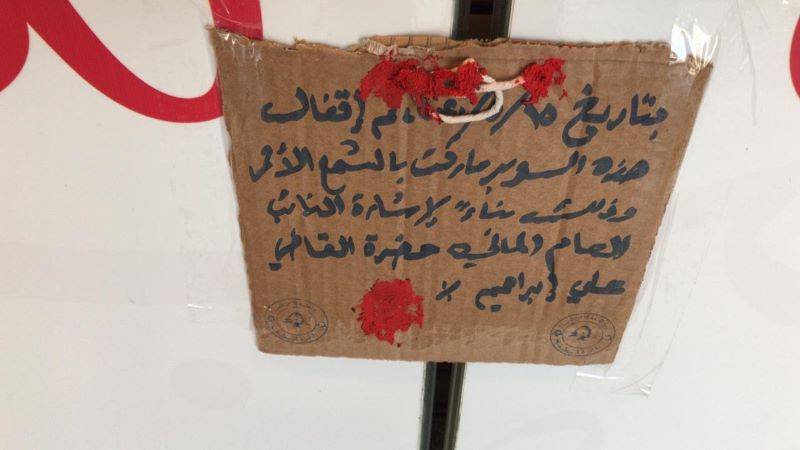 بتاريخ ١٥/ تم إقفال
هذه السوبرماركت بالشمع الأحمر
وذلك بناءً لإشارة النائب
العام المالي حضرة القاضي
علي إبراهيم